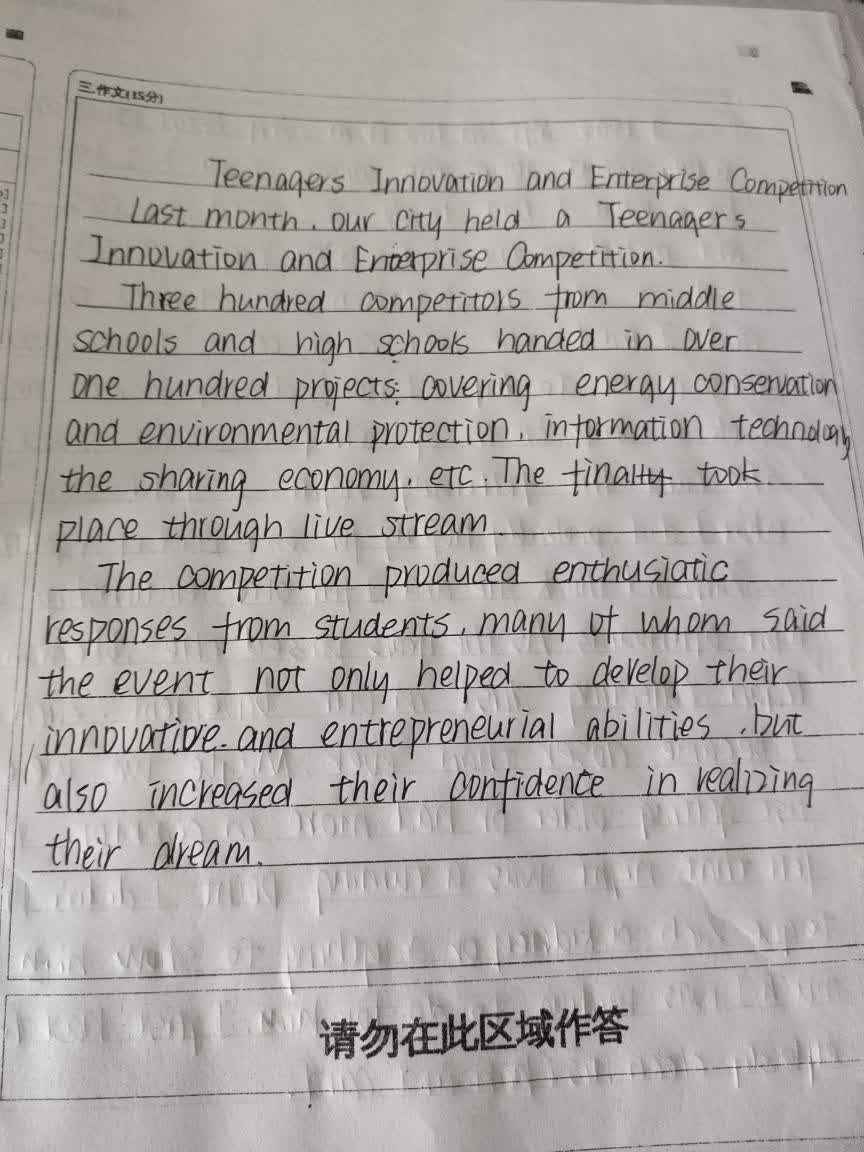 三.作文(15分)
Teenagers Innovation and Enterprise Competition
Last month, our city held a Teenagers
Innovation and Enterprise Competition.
Three hundred competitors from middle
schools and high schools handed in over
one hundred projects: covering energy conservation
and environmental protection, information technology
the sharing economy, etc. The finally took
place through live stream.
The competition produced enthusiatic
responses from students, many of whom said
the event not only helped to develop their
innovative and entrepreneurial abilities, but
also increased their confidence in realizing
their dream.
请勿在此区域作答